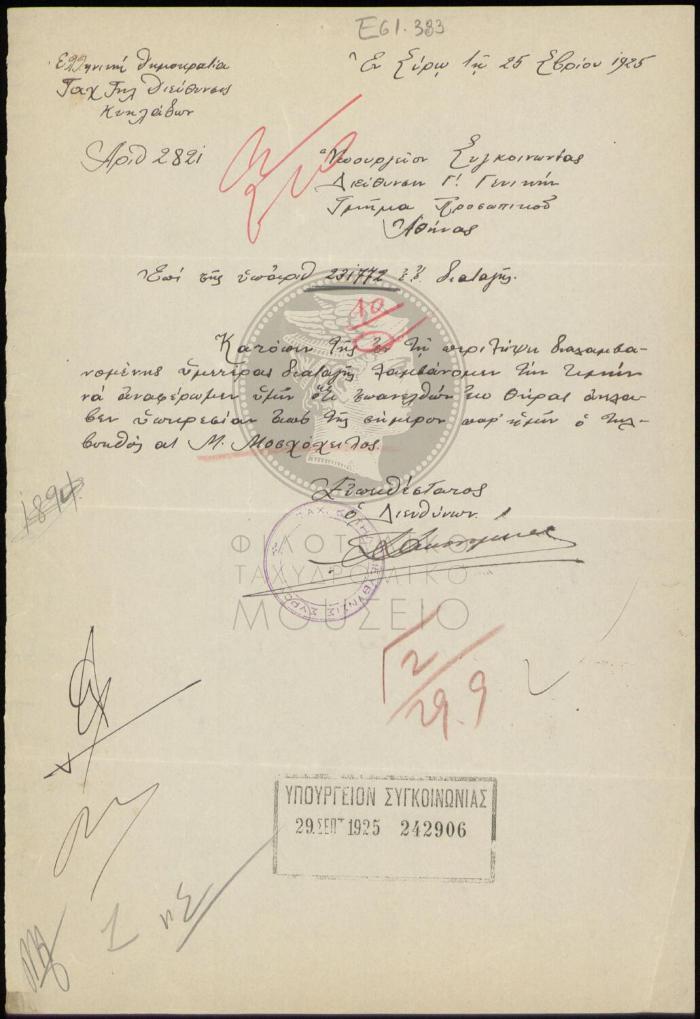 Ε61.383
Ἑλληνική Δημοκρατία
Ταχ Τηλ Διεύθυνσις
Κυκλάδων
Ἐν Σύρῳ τῇ 25 Σβρίου 1925
Ἀριθ 2821
Ὑπουργεῖον Συγκοινωνίας
Διεύθυνσιν Γ! Γενικήν
Τμῆμα Προσωπικοῦ
Ἀθήνας
Ἐπί τῆς ὑπ' ἀριθ 231772 ἐ.ἔ. διαταγῆς.
10
Κατόπιν τῆς ἐν τῇ περιλήψει διαλαμβα-
νομένης ὑμετέρας διαταγῆς λαμβάνομεν τήν τιμήν
νά ἀναφέρωμεν ὑμῖν ὅτι ἐπανελθών ἐκ Θήρας ἀνέλα-
βεν ὑπηρεσίαν ἀπό τῆς σήμερον παρ' ἡμῖν ὁ τηλ-
βοηθός α! Μ. Μοσχόχειλος.
1894
Εὐπειθέστατος
ὁ Διευθύνων
ΦΙΛΟΤΕΛΙΚΟ
ΤΑΧΥΔΡΟΜΙΚΟ
ΜΟΥΣΕΙΟ
2/29.9
ΥΠΟΥΡΓΕΙΟΝ ΣΥΓΚΟΙΝΩΝΙΑΣ
29.ΣΕΠΤ 1925 242906
1